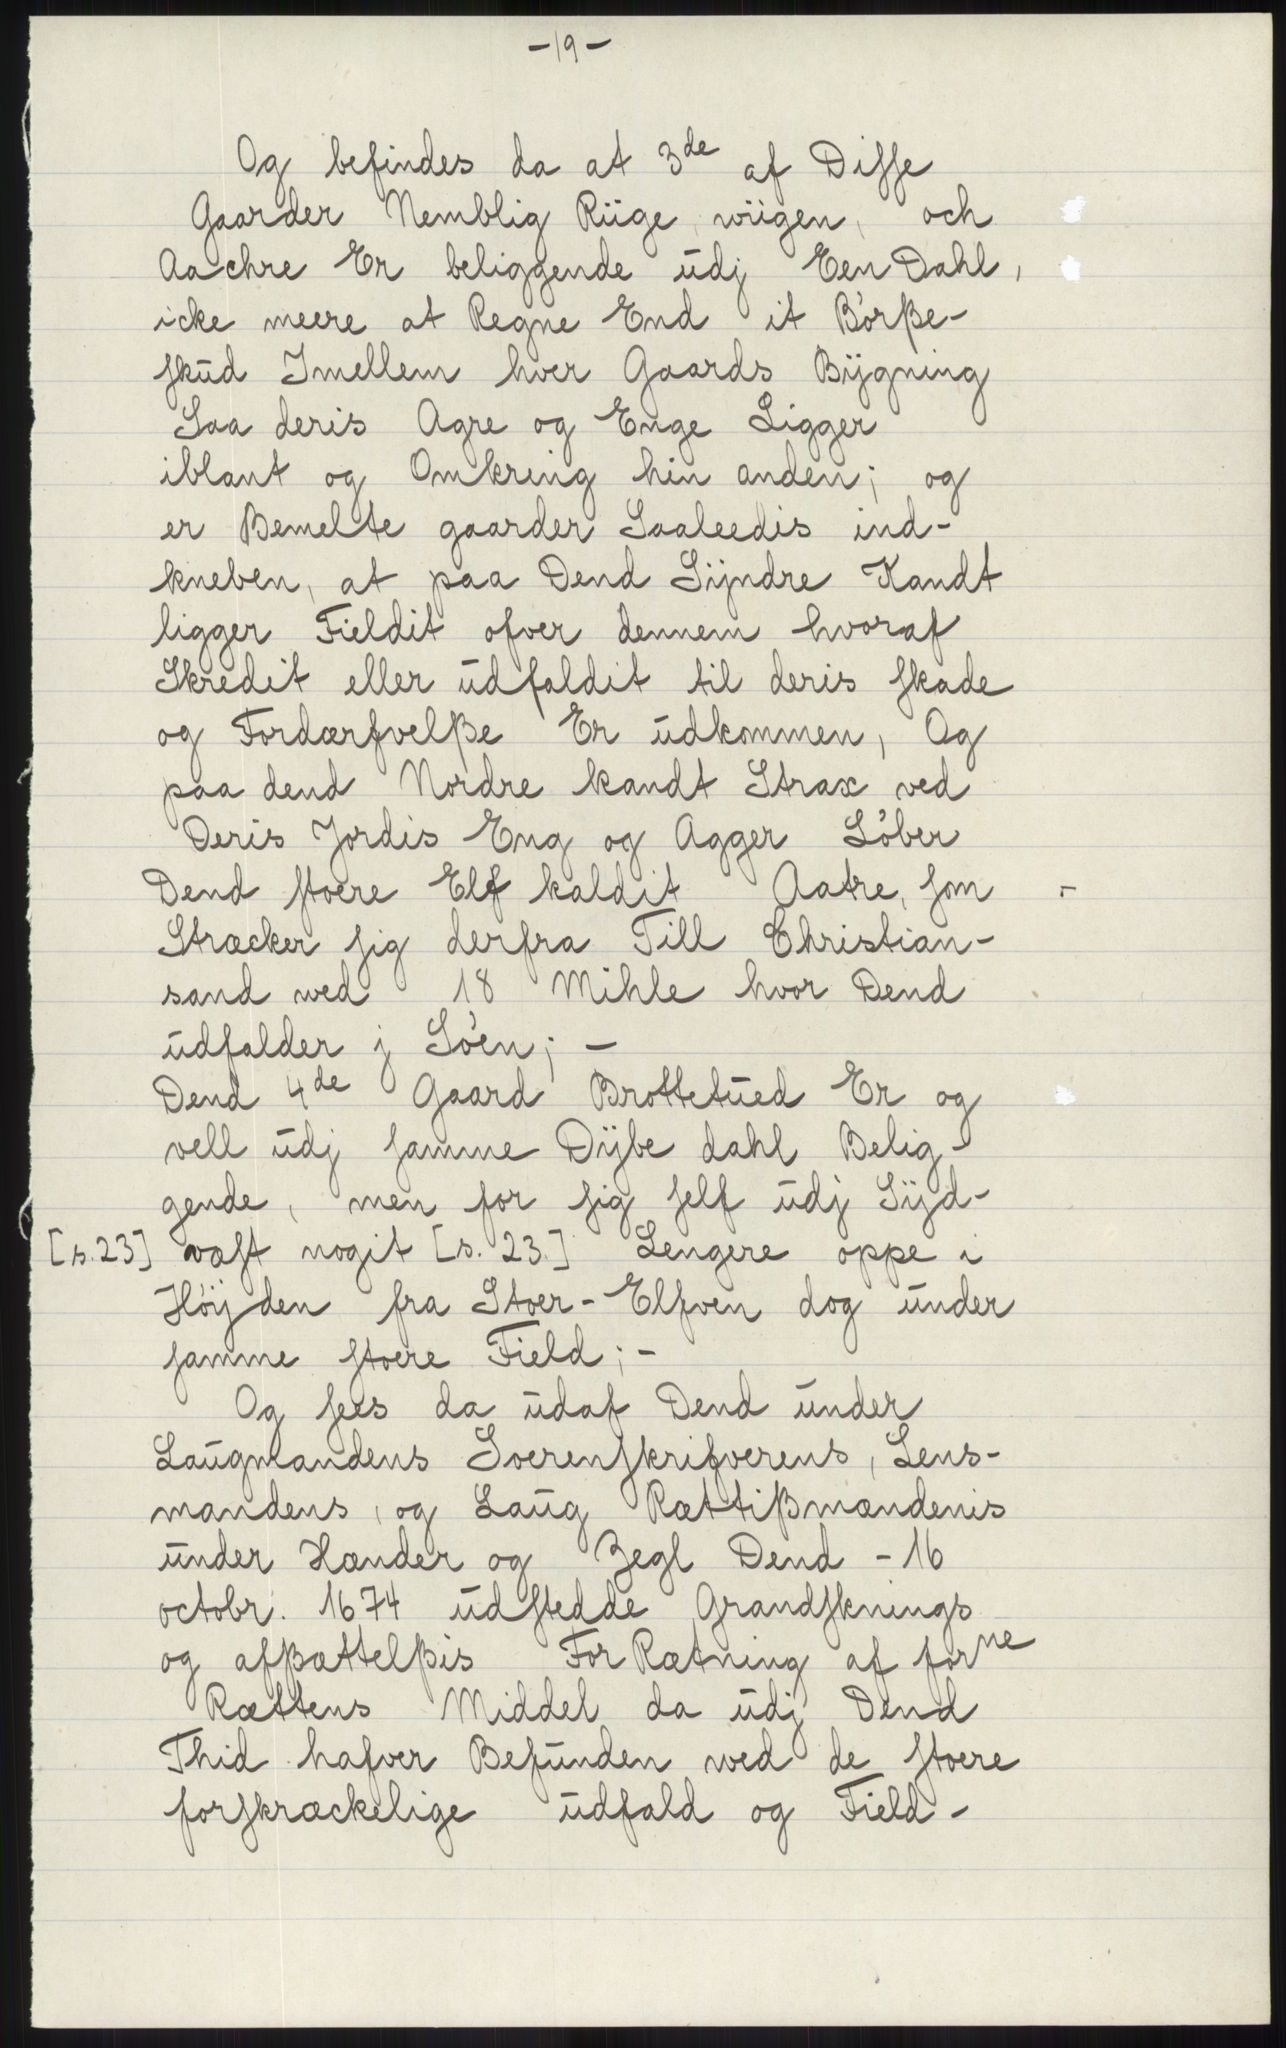 -19-
Og befindes da at 3de af Disse
Gaarder Nemblig Riige, wiigen, och
Aachre Er beliggende udj Een Dahl,
icke meere at Regne End it Börße-
skud Imellem hver Gaards Bÿgning
Saa deris Agre og Enge Ligger
iblant og Omkring hin anden; og
er Bemelte gaarder Saaleedis ind-
kneben, at paa Dend Sÿndre Kandt
ligger Fieldit ofver dennem hvoraf
Skredit eller udfaldit til deris skade
og Fordærfvelße Er udkommen, Og
paa dend Nordre kandt Strax ved
Deris Jordis Eng og Agger Löber
Dend stoere Elf kaldit Aatre, som
Stræcker sig derfra Till Christian-
sand wed 18 Mihle hvor Dend
udfalder j Söen; -
Dend 4de Gaard Brottetued Er og
vell udj samme Dÿbe dahl Belig-
gende, men for sig self udj Sÿd-
[s.23] væst nogit [s. 23.] Lengere oppe i
Höjden fra Stoer-Elfven dog under
samme stoere Field; -
Og sees da udaf Dend under
Laugmandens Soerenskrifverens, Lens-
mandens, og Laug Rættißmændenis
under Hænder og Zegl Dend - 16
octobr. 1674 udstedde Grandsknings
og afßættelßis ForRætning af forne
Rættens Middel da udj Dend
Thid hafver Befunden wed de stoere
forskræckelige udfald og Field-